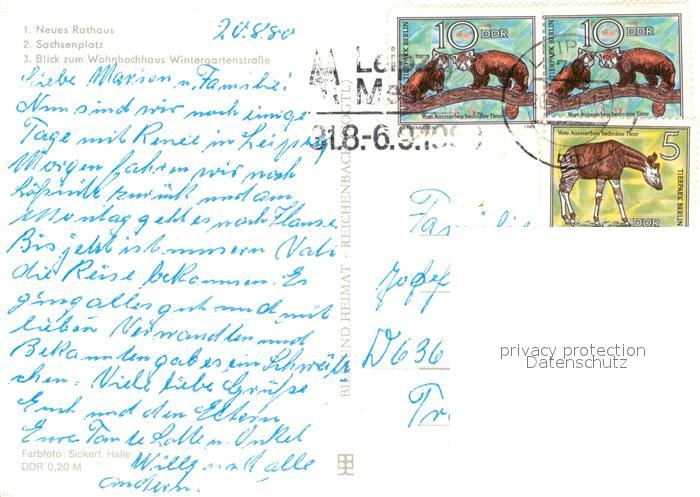 1. Neues Rathaus
2. Sachsenplatz
3. Blick zum Wohnhochhaus Wintergartenstraße
20.8.80
Liebe Marion u. Familie!
Nun sind wir noch einige
Tage mit Renee in Leipzig
Morgen fahren wir nach
zurück und am
Montag geht es nach Hause
Bis jetzt ist unserm Vati
die Reise bekommen. Es
ging alles gut und mit
lieben Verwandten und
Bekannten gab es ein Schwätz
chen. Viele liebe Grüße
Euch und den Eltern
Eure Tante Lotte u. Onkel
Willy und alle
andern.
Farbfoto: Sickert, Halle
DDR 0,20 M
BILD UND HEIMAT · REICHENBACH (VOGTL)
10 DDR
TIERPARK BERLIN
Vom Aussterben bedrohte Tiere
10 DDR
TIERPARK BERLIN
Vom Aussterben bedrohte Tiere
Vom Aussterben bedrohte Tiere
5
TIERPARK BERLIN
DDR
31.8.-6.9.19
Familie
Josef
D 636
privacy protection
Datenschutz